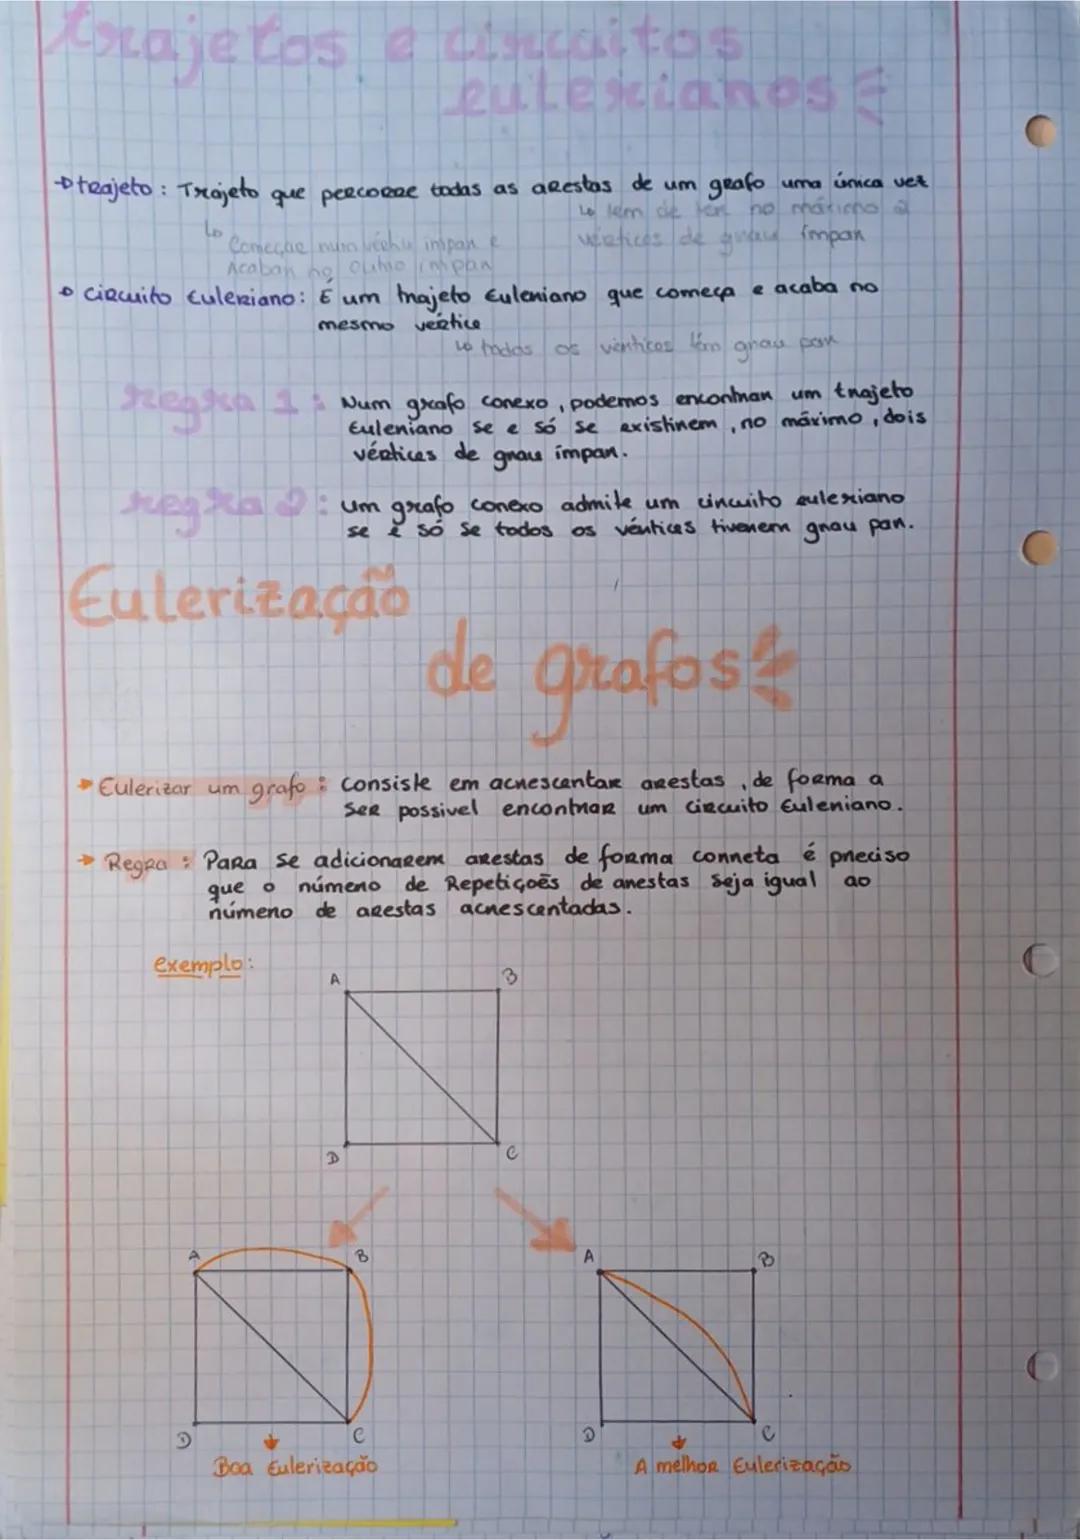 trajetos e circuitos
eulerianos
trajeto: Trajeto que percorre todas as arestas de um grafo uma única vez
↳ tem de ter no máximo 2
vértices de grau ímpar
↳ Começar num vértice impar e
Acabar no outro impar
circuito Euleriano: É um trajeto Euleriano que começa e acaba no
mesmo vértice
↳ todos os vértices têm grau par
regra 1: Num grafo conexo, podemos encontrar um trajeto
Euleriano se e só se existirem, no máximo, dois
vértices de grau ímpar.
regra 2: um grafo conexo admite um circuito euleriano
se e só se todos os vértices tiverem grau par.
Eulerização
de grafos
→ Eulerizar um grafo: consiste em acrescentar arestas, de forma a
ser possivel encontrar um circuito Euleriano.
→ Regra: Para se adicionarem arestas de forma correta é preciso
que o número de Repetiçoẽs de arestas seja igual ao
número de arestas acrescentadas.
exemplo:
A B
D C
A B A B
D C D C
Boa Eulerização A melhor Eulerização